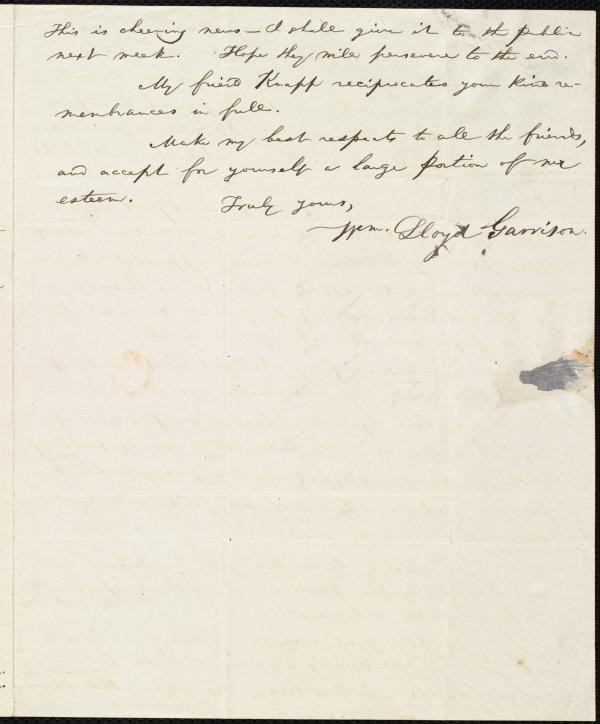 This is cheering news — I shall give it to the public
next week. Hope they will persevere to the end.
My friend Knapp reciprocates your kind re-
membrances in full.
Make my best respects to all the friends,
and accept for yourself a large portion of my
esteem. Truly yours,
Wm. Lloyd Garrison.